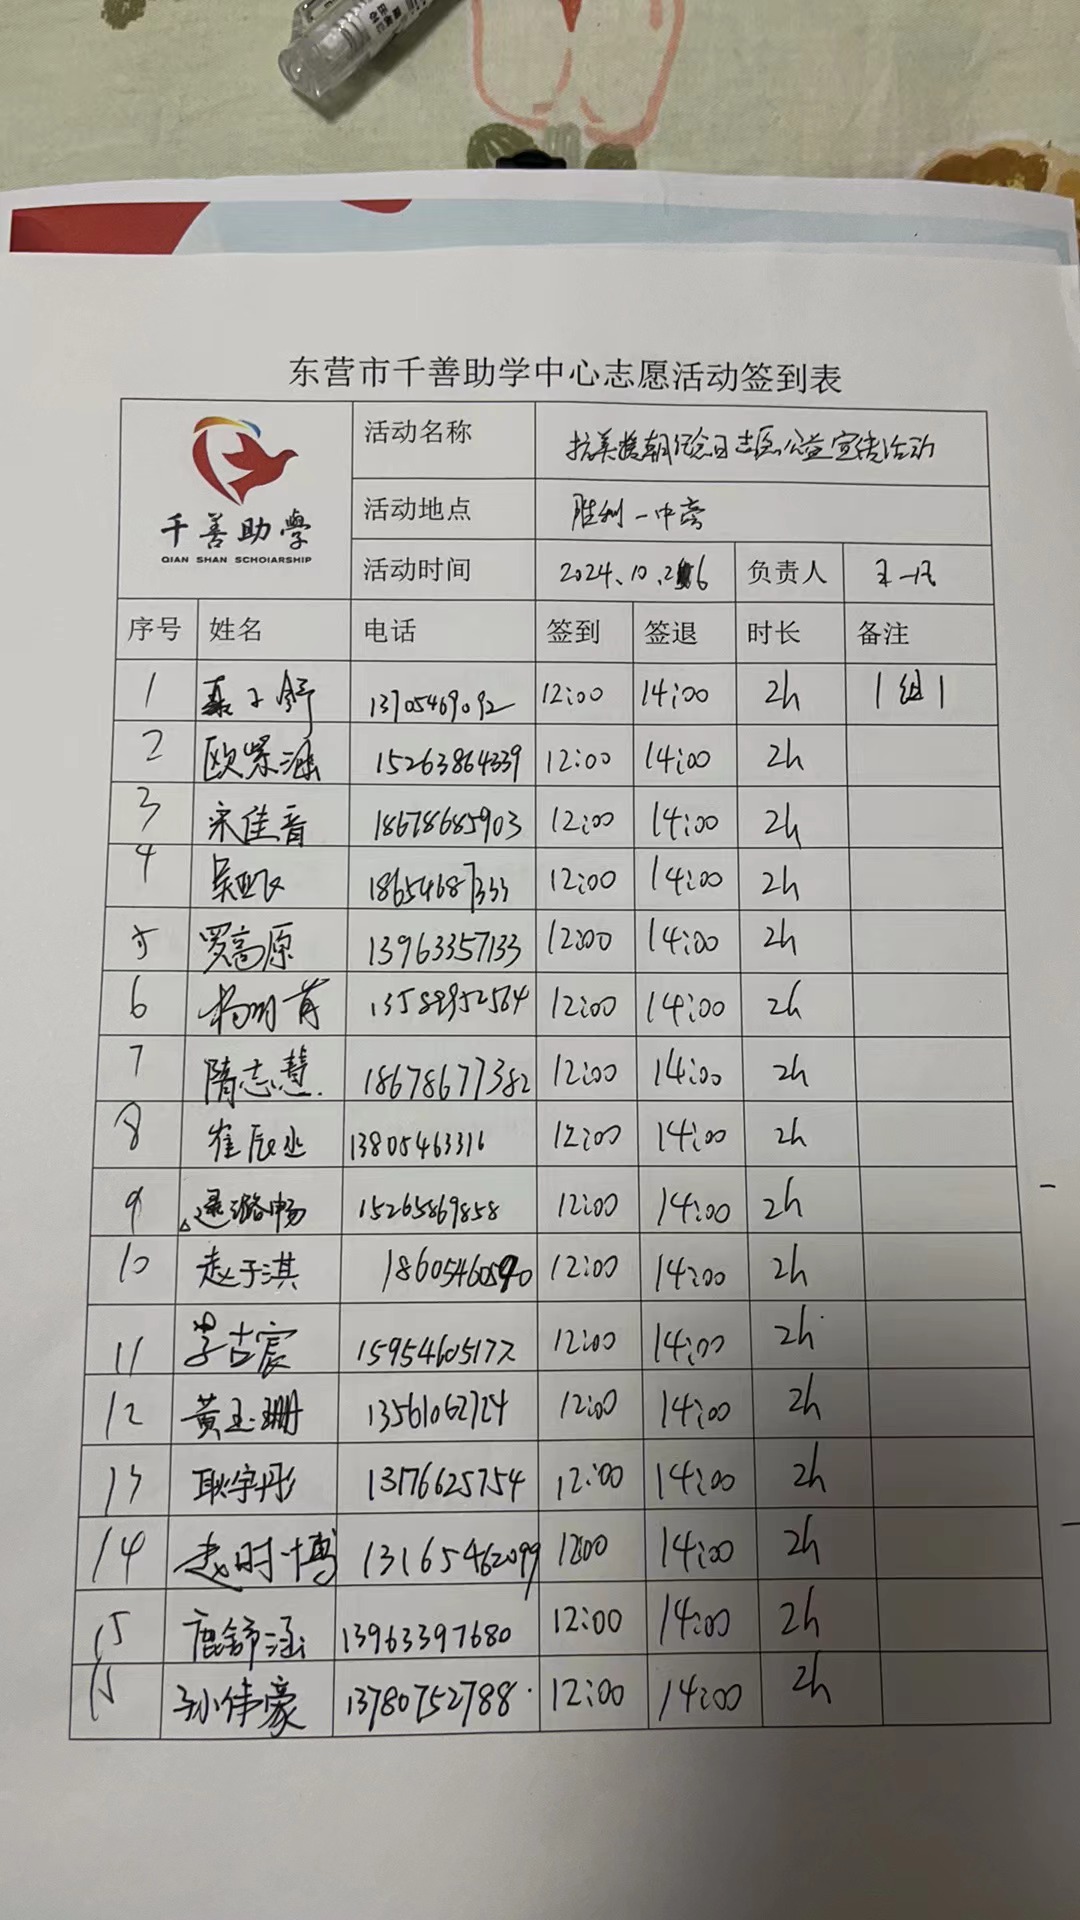 东营市千善助学中心志愿活动签到表
千善助學
QIAN SHAN SCHOIARSHIP
活动名称 抗美援朝纪念日志愿公益宣传活动
活动地点 胜利一中旁
活动时间 2024.10.26 负责人 王一凡
序号 姓名 电话 签到 签退 时长 备注
1 子舒 13705469092 12:00 14:00 2h 1组1
2 欧紫涵 15263864339 12:00 14:00 2h
3 宋佳音 18678685903 12:00 14:00 2h
4 18654687333 12:00 14:00 2h
5 罗高原 13963357133 12:00 14:00 2h
6 杨明 13589952564 12:00 14:00 2h
7 隋志慧 18678677382 12:00 14:00 2h
8 崔辰 13805463316 12:00 14:00 2h
9 逯潞畅 15265869858 12:00 14:00 2h
10 赵于淇 18605460590 12:00 14:00 2h
11 古宸 15954605172 12:00 14:00 2h
12 黄玉珊 13561062724 12:00 14:00 2h
13 耿宇彤 13176625754 12:00 14:00 2h
14 赵时博 13165462099 12:00 14:00 2h
15 鹿舒涵 13963397680 12:00 14:00 2h
15 孙伟豪 13780752788 12:00 14:00 2h